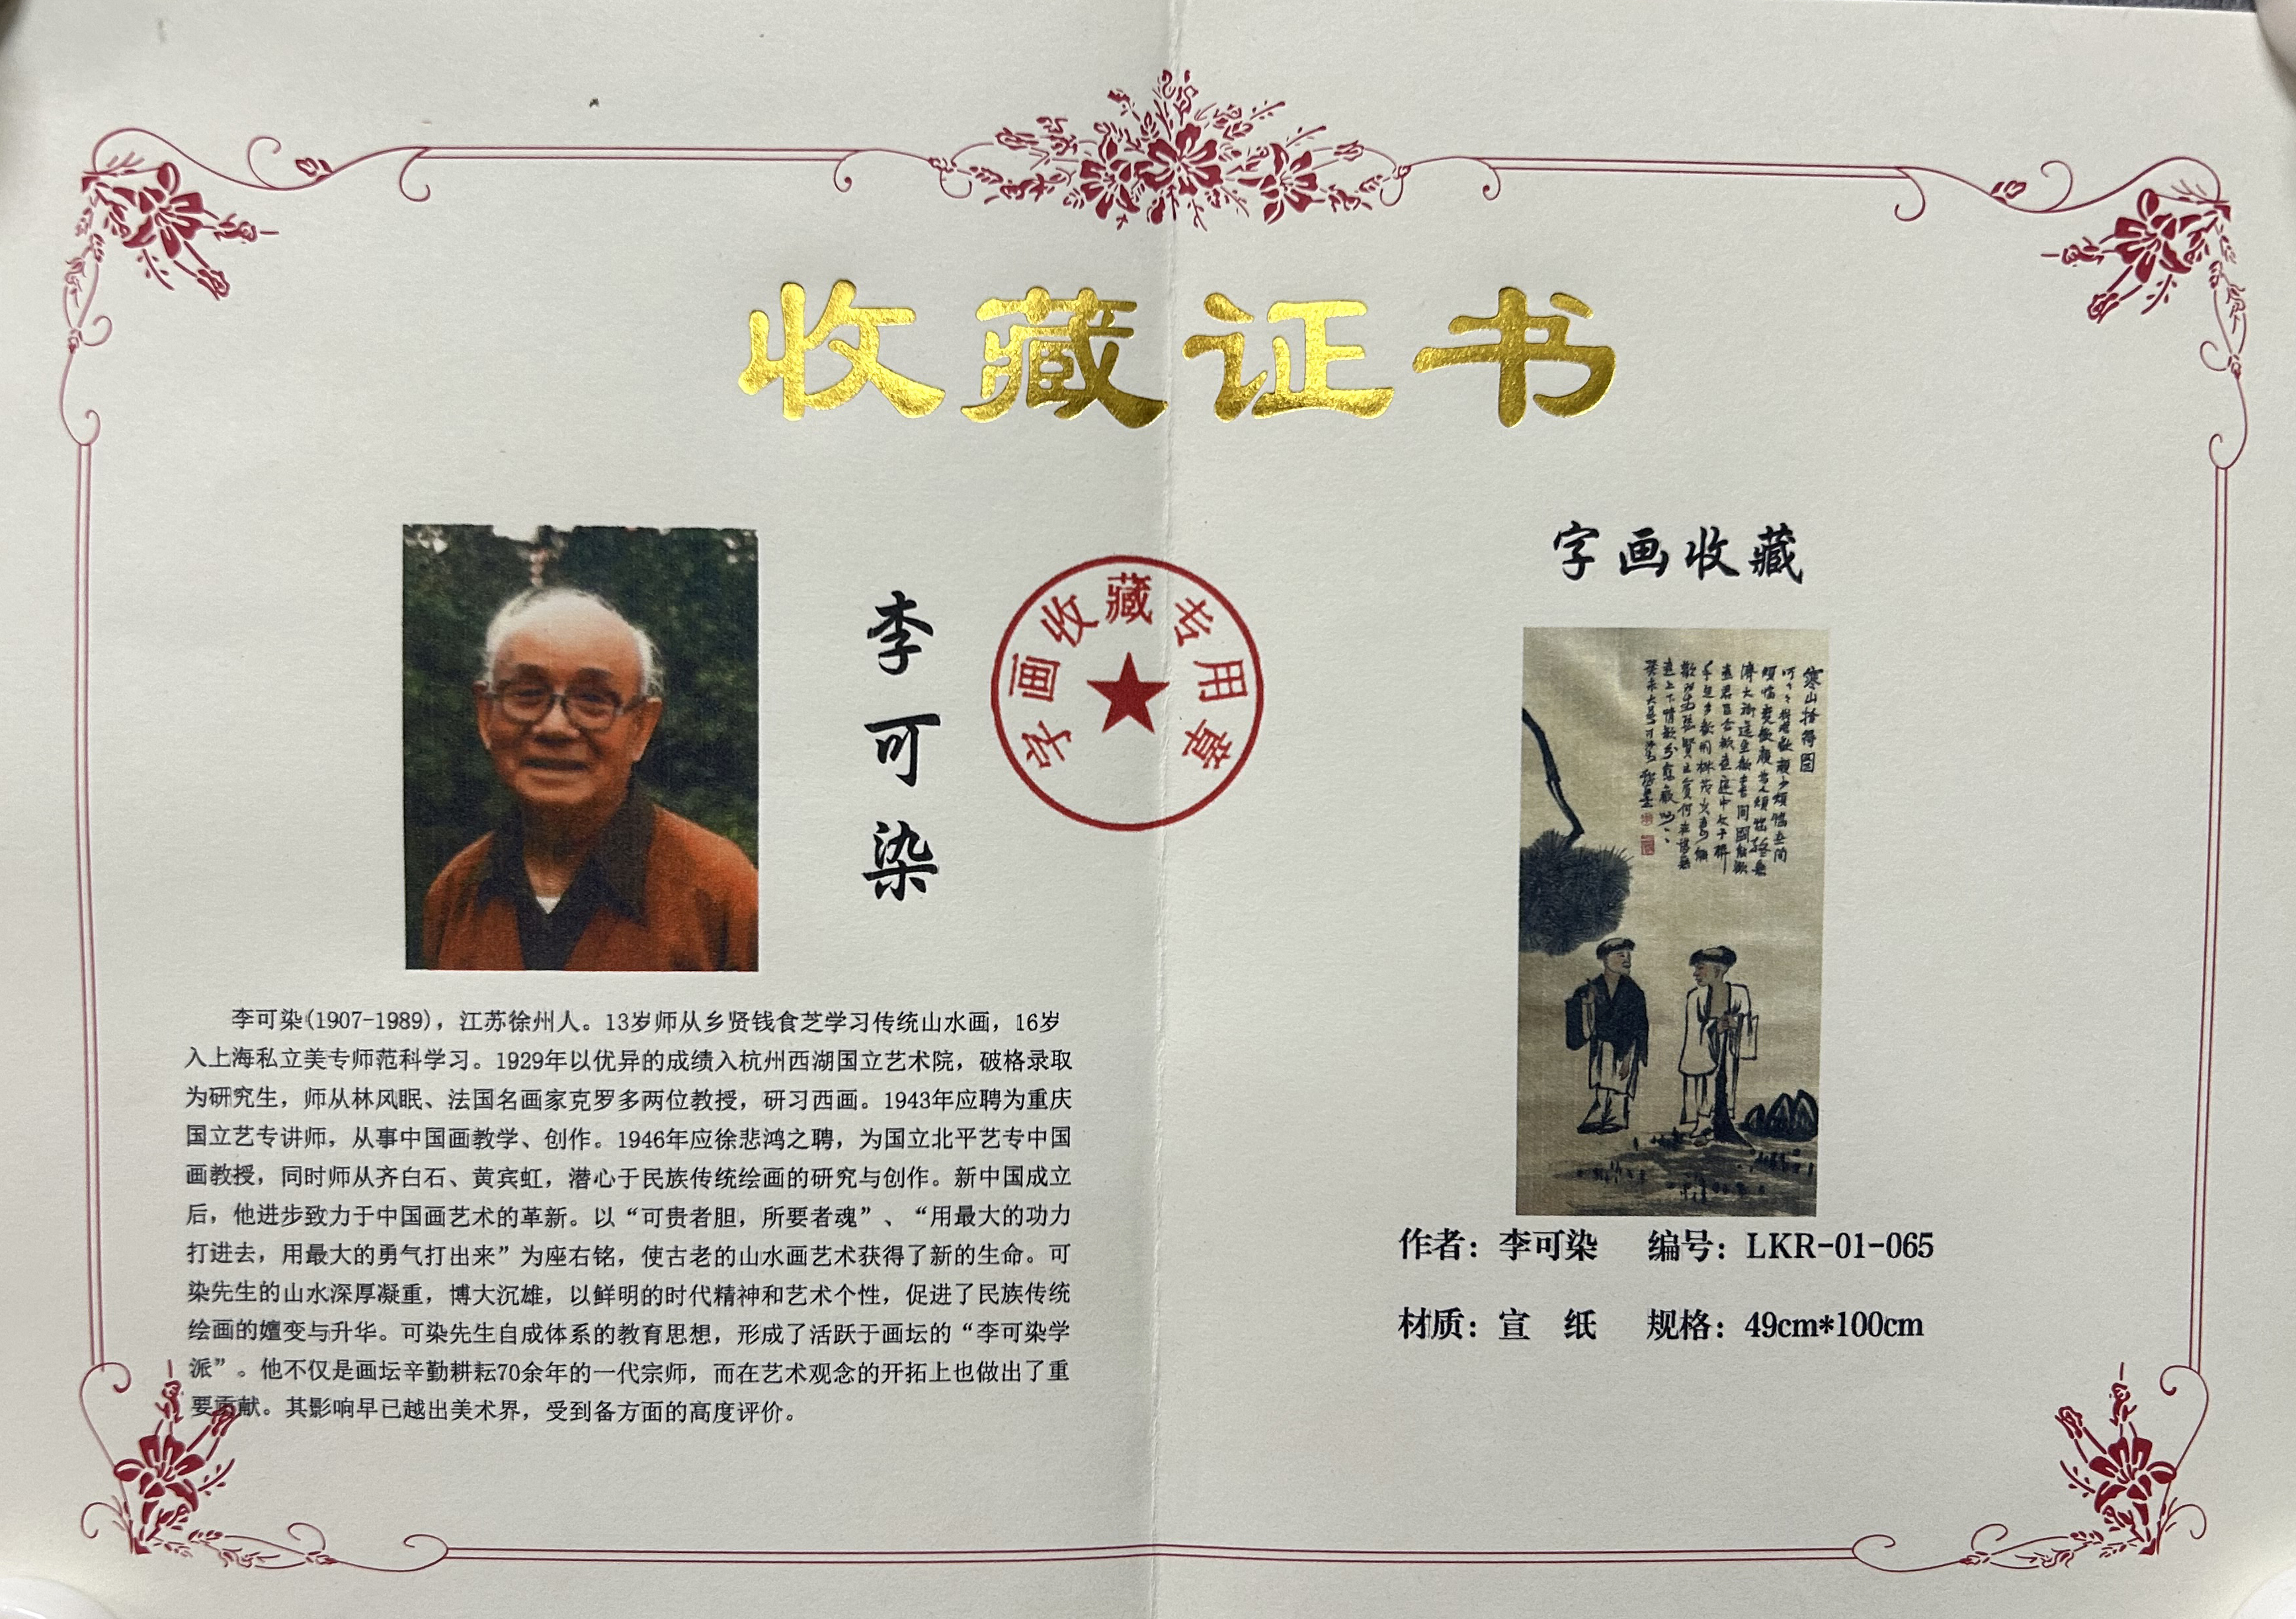 收藏证书
李可染
字画收藏专用章
李可染(1907-1989)，江苏徐州人。13岁师从乡贤钱食芝学习传统山水画，16岁
入上海私立美专师范科学习。1929年以优异的成绩入杭州西湖国立艺术院，破格录取
为研究生，师从林风眠、法国名画家克罗多两位教授，研习西画。1943年应聘为重庆
国立艺专讲师，从事中国画教学、创作。1946年应徐悲鸿之聘，为国立北平艺专中国
画教授，同时师从齐白石、黄宾虹，潜心于民族传统绘画的研究与创作。新中国成立
后，他进步致力于中国画艺术的革新。以“可贵者胆，所要者魂”、“用最大的功力
打进去，用最大的勇气打出来”为座右铭，使古老的山水画艺术获得了新的生命。可
染先生的山水深厚凝重，博大沉雄，以鲜明的时代精神和艺术个性，促进了民族传统
绘画的嬗变与升华。可染先生自成体系的教育思想，形成了活跃于画坛的“李可染学
派”。他不仅是画坛辛勤耕耘70余年的一代宗师，而在艺术观念的开拓上也做出了重
要贡献。其影响早已越出美术界，受到各方面的高度评价。
字画收藏
寒山拾得图
作者：李可染 编号：LKR-01-065
材质：宣 纸 规格：49cm*100cm